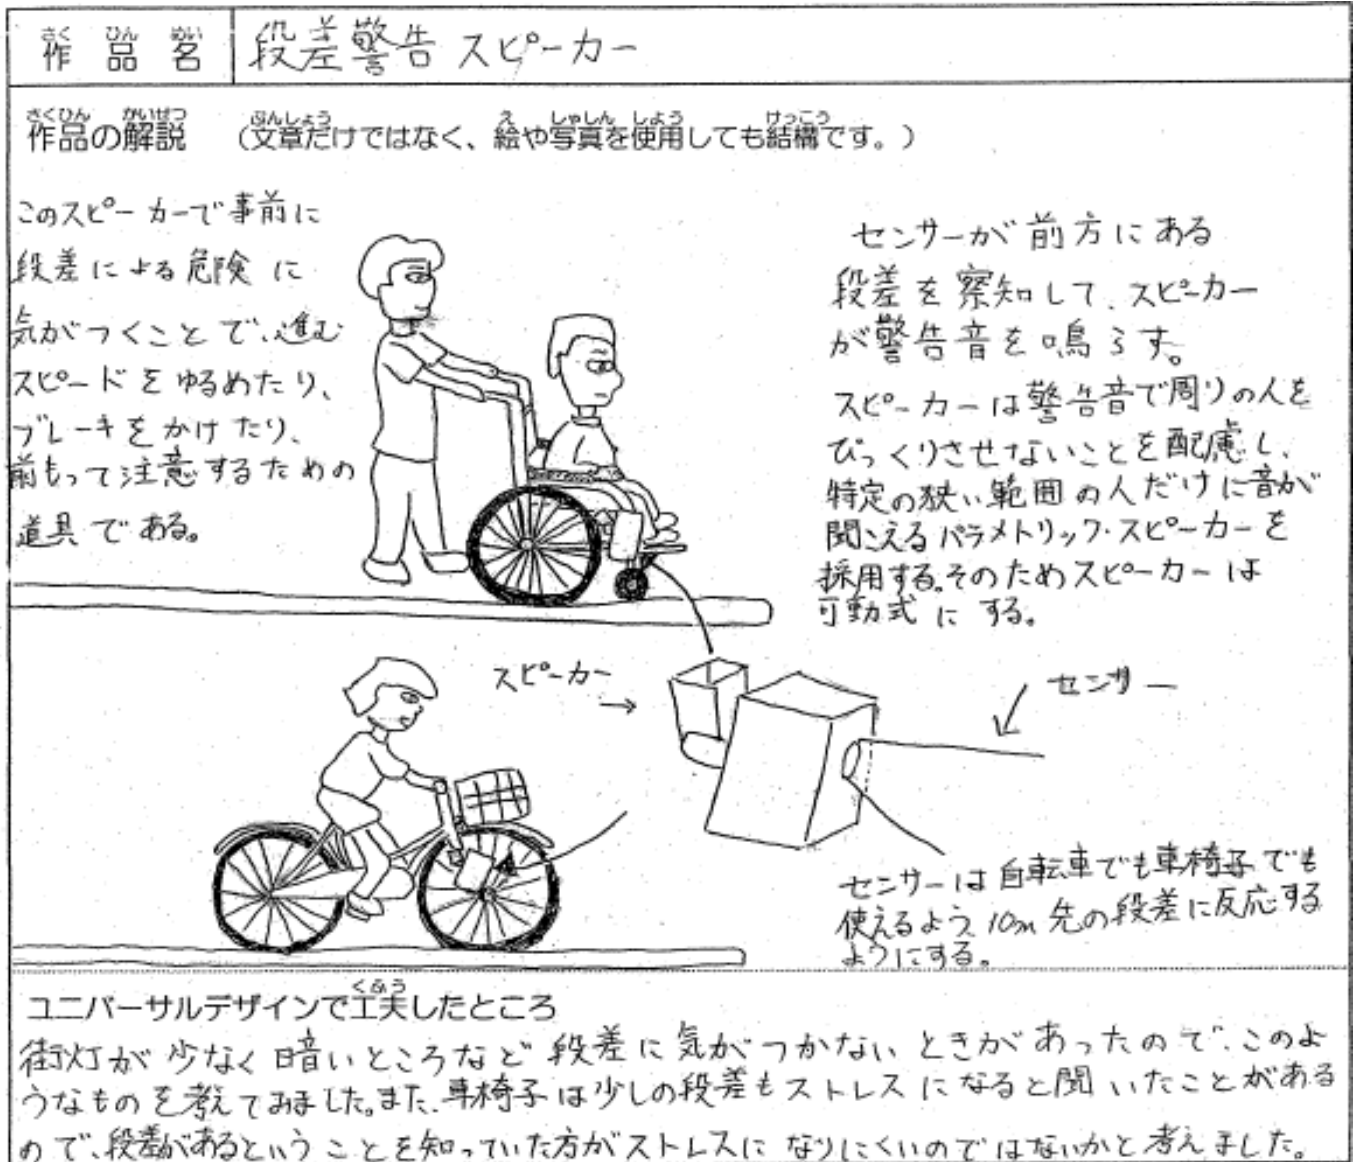 さく ひん めい
作品名
段差警告スピーカー
さくひん かいせつ ぶんしょう え しゃしん しよう けっこう
作品の解説 (文章だけではなく、絵や写真を使用しても結構です。)
このスピーカーで事前に
段差による危険に
気がつくことで、進む
スピードをゆるめたり、
ブレーキをかけたり、
前もって注意するための
道具である。
センサーが前方にある
段差を察知して、スピーカー
が警告音を鳴らす。
スピーカーは警告音で周りの人を
びっくりさせないことを配慮し、
特定の狭い範囲の人だけに音が
聞こえるパラメトリック・スピーカーを
採用する。そのためスピーカーは
可動式にする。
スピーカー
センサー
センサーは自転車でも車椅子でも
使えるよう、10m先の段差に反応する
ようにする。
くふう
ユニバーサルデザインで工夫したところ
街灯が少なく暗いところなど段差に気がつかないときがあったので、このよ
うなものを考えてみました。また、車椅子は少しの段差もストレスになると聞いたことがある
ので、段差があるということを知っていた方がストレスになりにくいのではないかと考えました。